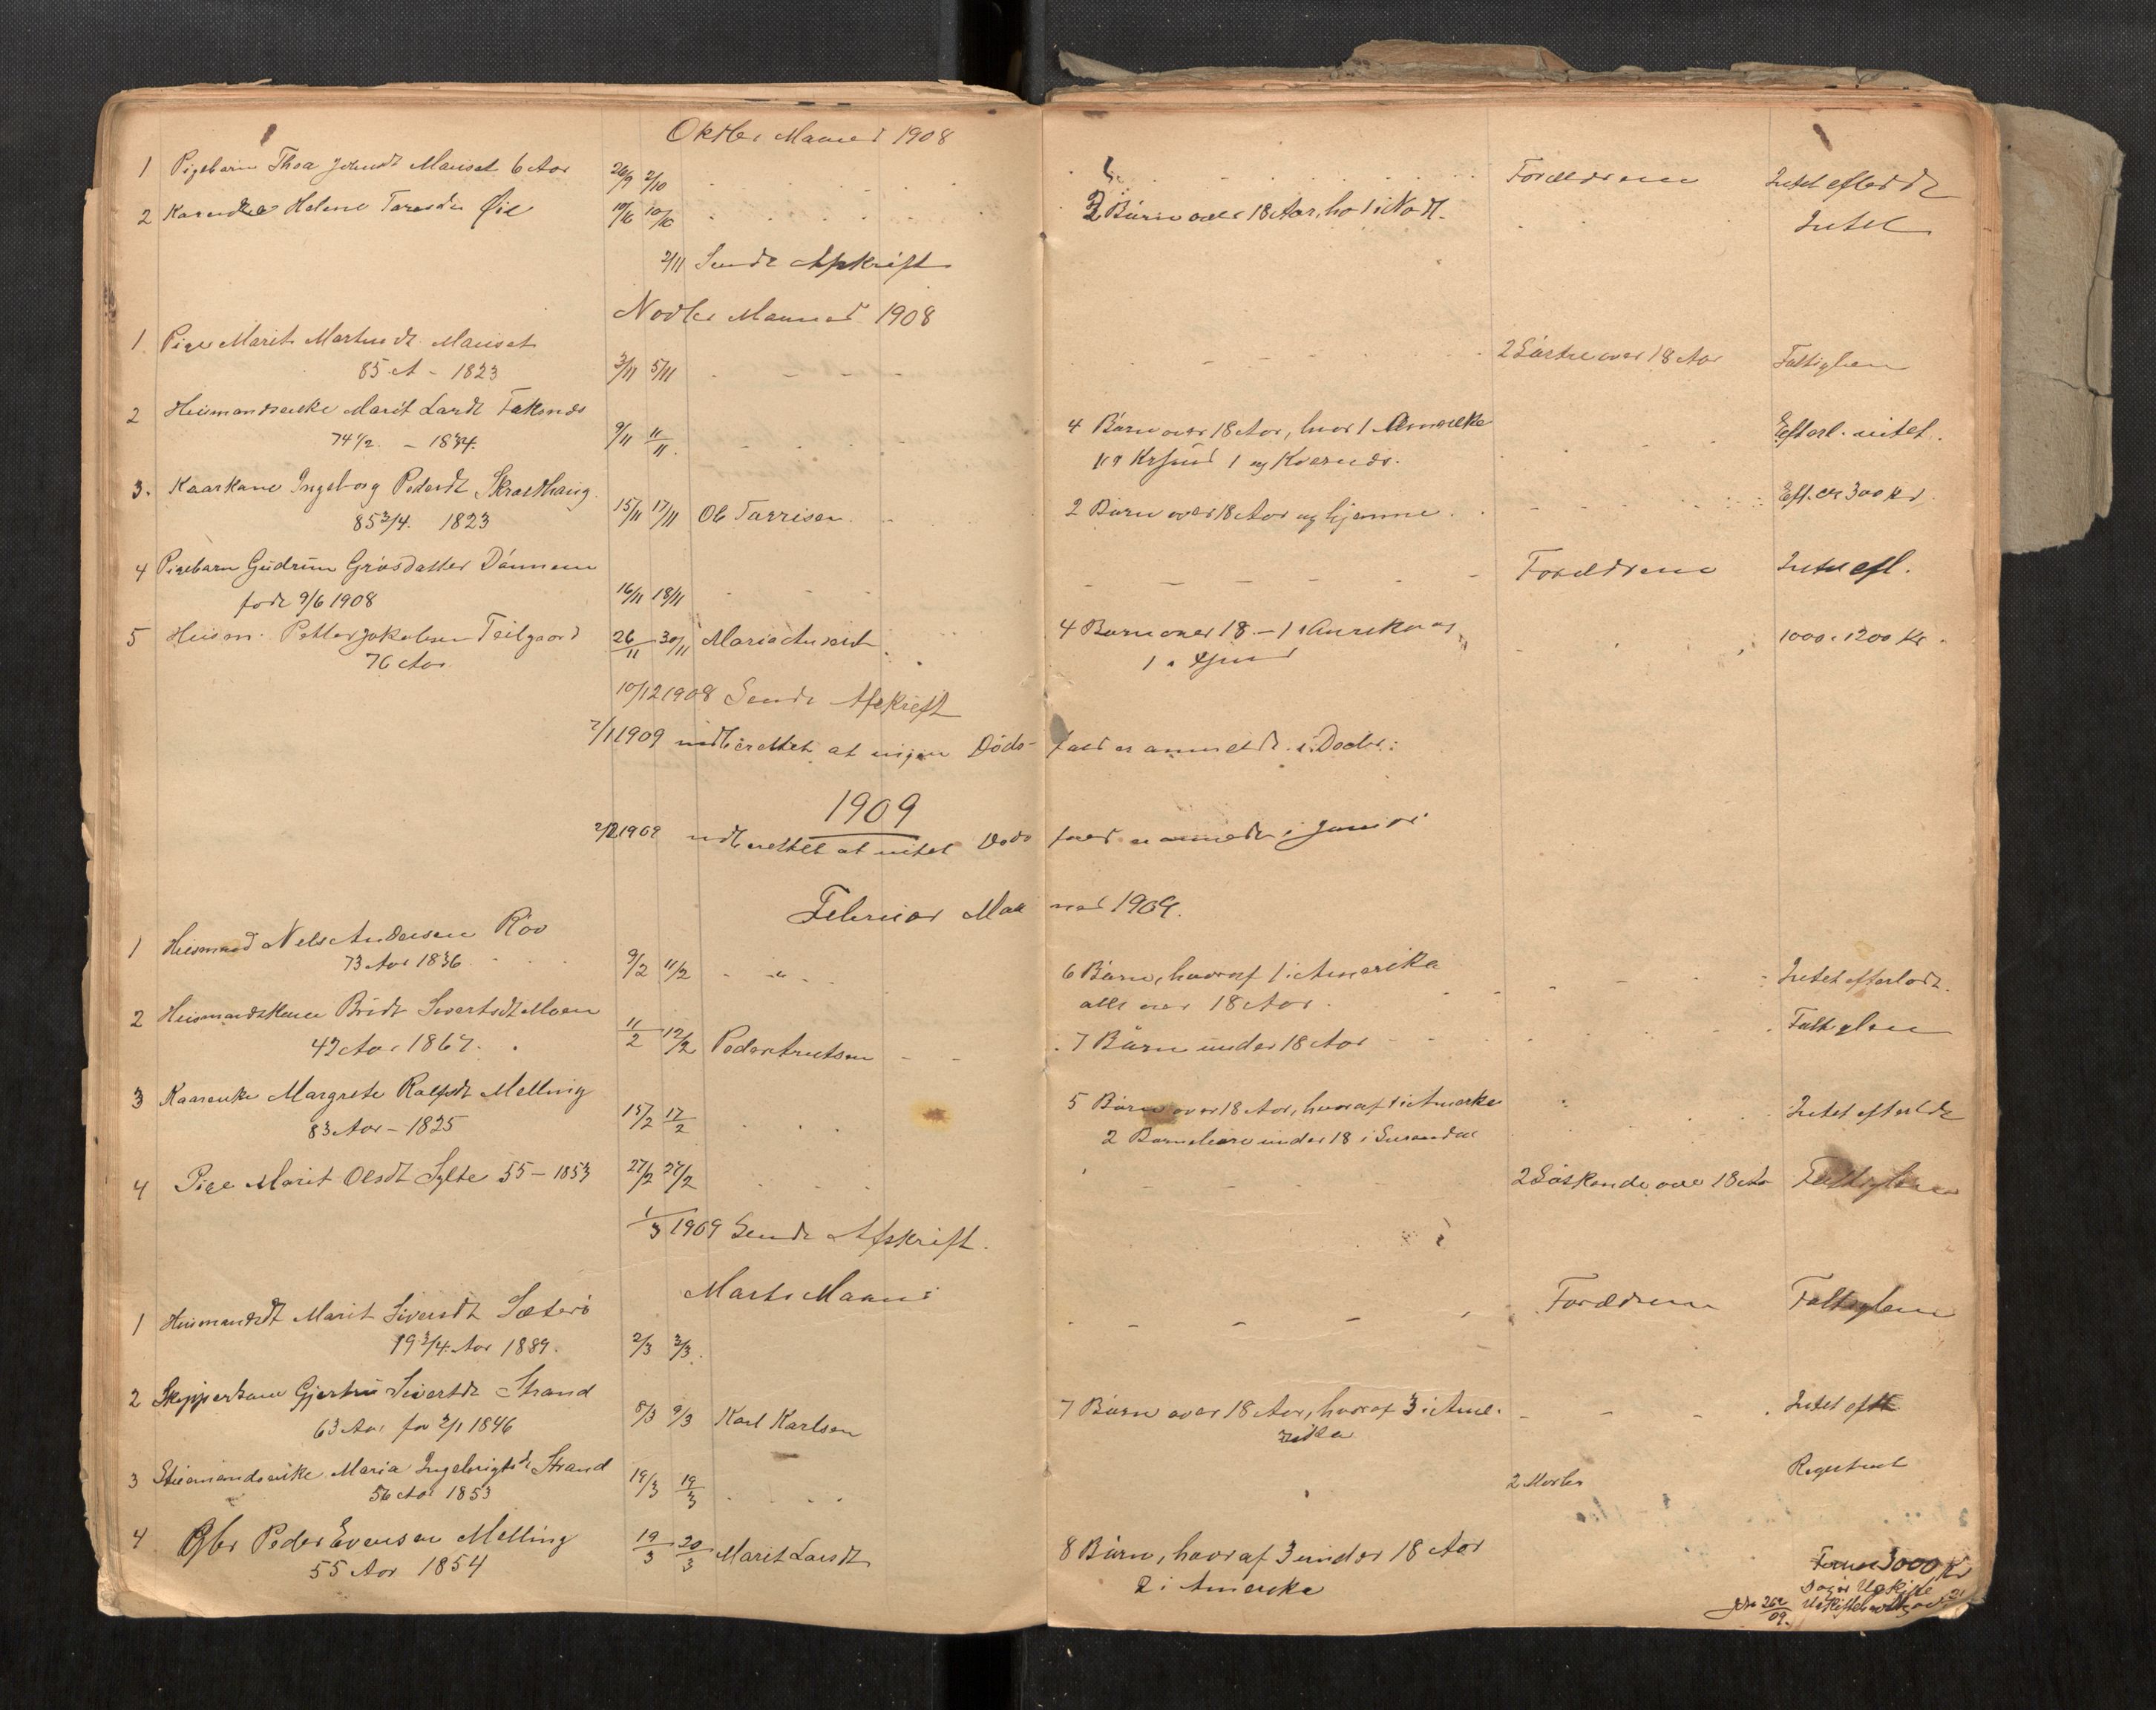 Oktbr Maaned 1908
1 Pigebarn Thea Johnsdt Mauset 6 Aar 26/9 2/10 Forældrene Intet efterldt
2 Karendke Helene Taresdtr Øie 10/10 10/10 2 Børn over 18 Aar, ho 1 i No dt. Intet
2/11 Sendt Afskrift
Novbr Maaned 1908
1 Pige Marit Martinsdt. Mauset 2 Søstre over 18 Aar Fattiglem
85 A - 1823 3/11 5/11
2 Husmandsenke Marit Larsdt Taknes 9/11 11/11 4 Børn over 18 Aar, hvor 1 Amerike Efterl. intet.
74 1/2 - 1834. 1 og Krsund 1 og Kvernes.
3. Kaarkone Ingeborg Pedersdt Skrødhaug 15/11 17/11 Ole Tarrisen 2 Børn over 18 Aar og hjemme Eft. ca 300 Kr.
85 3/4. 1823
4 Pigebarn Gudrun Grøsdatter Dønnem Forældrene Intet efl.
født 9/6 1908 16/11 18/11
5 Husm. Petter Jakobsen Teilgaard 26/11 30/11 Maria Andersdt 4 Børn over 18 - 1 i Amerika og 1000 a 1200 Kr.
76 Aar 1 i Xsund
10/12 1908 Sendt Afskrift
2/1 1909 indberettet at ingen Døds- fald er anmeldt i Decbr:
1909
2/2 1909 indberettet at intet Døds fald er anmeldt i Januar
Februar Maa ned 1909.
1 Husmand Nels Andersen Røv 9/2 11/2 6 Børn, hvoraf 1 i Amerika Intet efterladt.
73 Aar 1836 alle over 18 Aar.
2 Husmandskone Bridt Sivertsdt Moen 11/2 12/2 Peder Knutsen 7 Børn under 18 Aar Fattiglem
42 Aar 1867.
3 Kaarenke Margrete Rolfsdt Melling 15/2 17/2 5 Børn over 18 Aar, hvoraf 1 i Amerke Intet efterldt
83 Aar - 1825 2 Barnebarn under 18 i Surendal
4 Pige Marit Olsdt Sylte 55 - 1853 27/2 27/2 2 Søskende over 18 Aar Fattiglem
1/3 1909 Sendt Afskrift.
Marts Maaned
1 Husmandsdt Marit Siversdt Sæterø Forældrene Fattiglem
19 3/4 Aar 1889. 2/3 3/3.
2 Skipperkone Gjertru Sivertsdt Strand 8/3 9/3 Karl Karlsen 7 Børn over 18 Aar, hvoraf 3 i Ame- Intet eft
63 Aar fø 3/1 1846 rika
3 Stuemandsenke Maria Ingebrigtsdt Strand 19/3 19/3 2 Registreret
56 Aar 1853
4 Gbr Peder Evensen Melling 19/3 20/3 Marit Larsdt 8 Børn, hvoraf 3 under 18 Aar
55 Aar 1854 2 i Amerika
3000 Kr